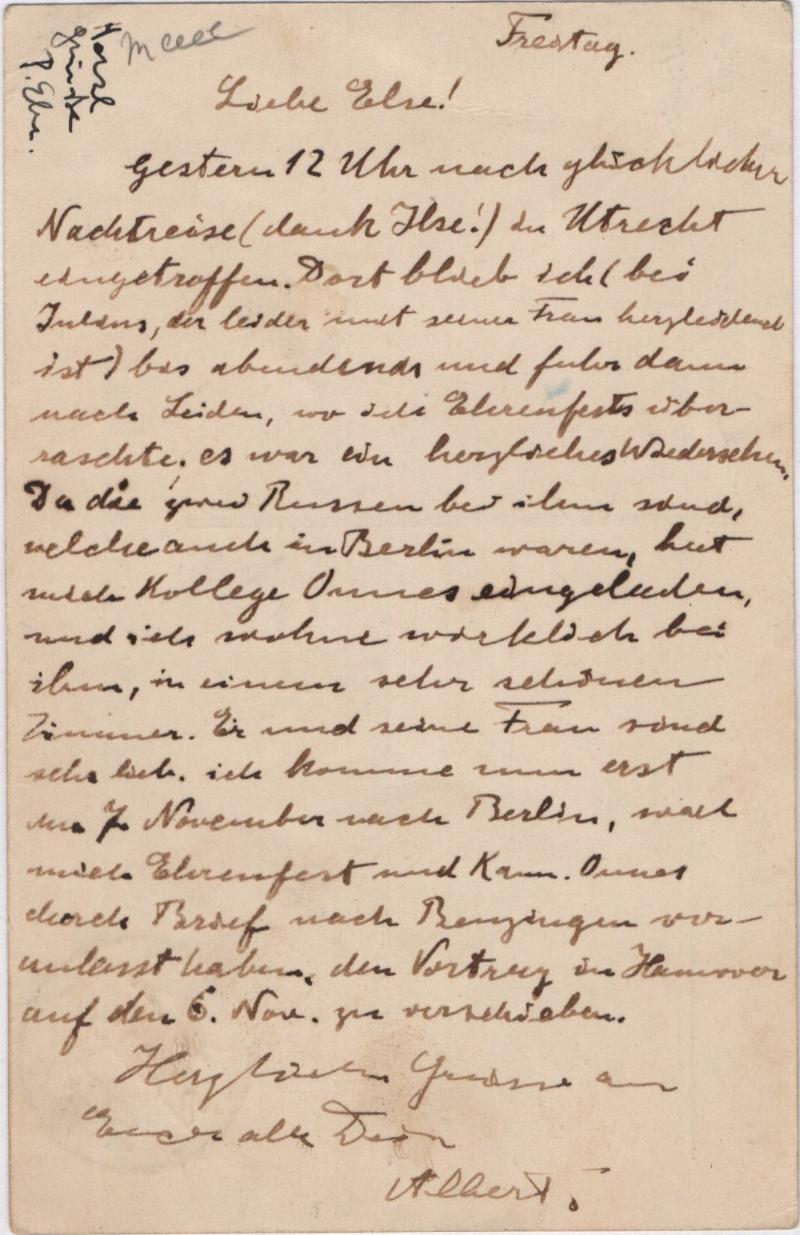 Freitag.
Liebe Else!
Gestern 12 Uhr nach glücklicher
Nachtreise (dank Ilse!) in Utrecht
eingetroffen. Dort blieb ich (bei
Julius, der leider mit seiner Frau herzleidend
ist) bis abends und fuhr dann
nach Leiden, wo ich Ehrenfests über-
raschte. es war ein herzliches Wiedersehen.
Da die zwei Russen bei ihm sind,
welche auch in Berlin waren, hat
mich Kollege Onnes eingeladen,
und ich wohne wirklich bei
ihm, in einem sehr schönen
Zimmer. Er und seine Frau sind
sehr lieb. ich komme nun erst
am 7. November nach Berlin, weil
mich Ehrenfest und Kam. Onnes
durch Brief nach Benzingen ver-
anlasst haben, den Vortrag in Hannover
auf den 6. Nov. zu verschieben.
Herzliche Grüsse an
Euch alle Dein
Albert.